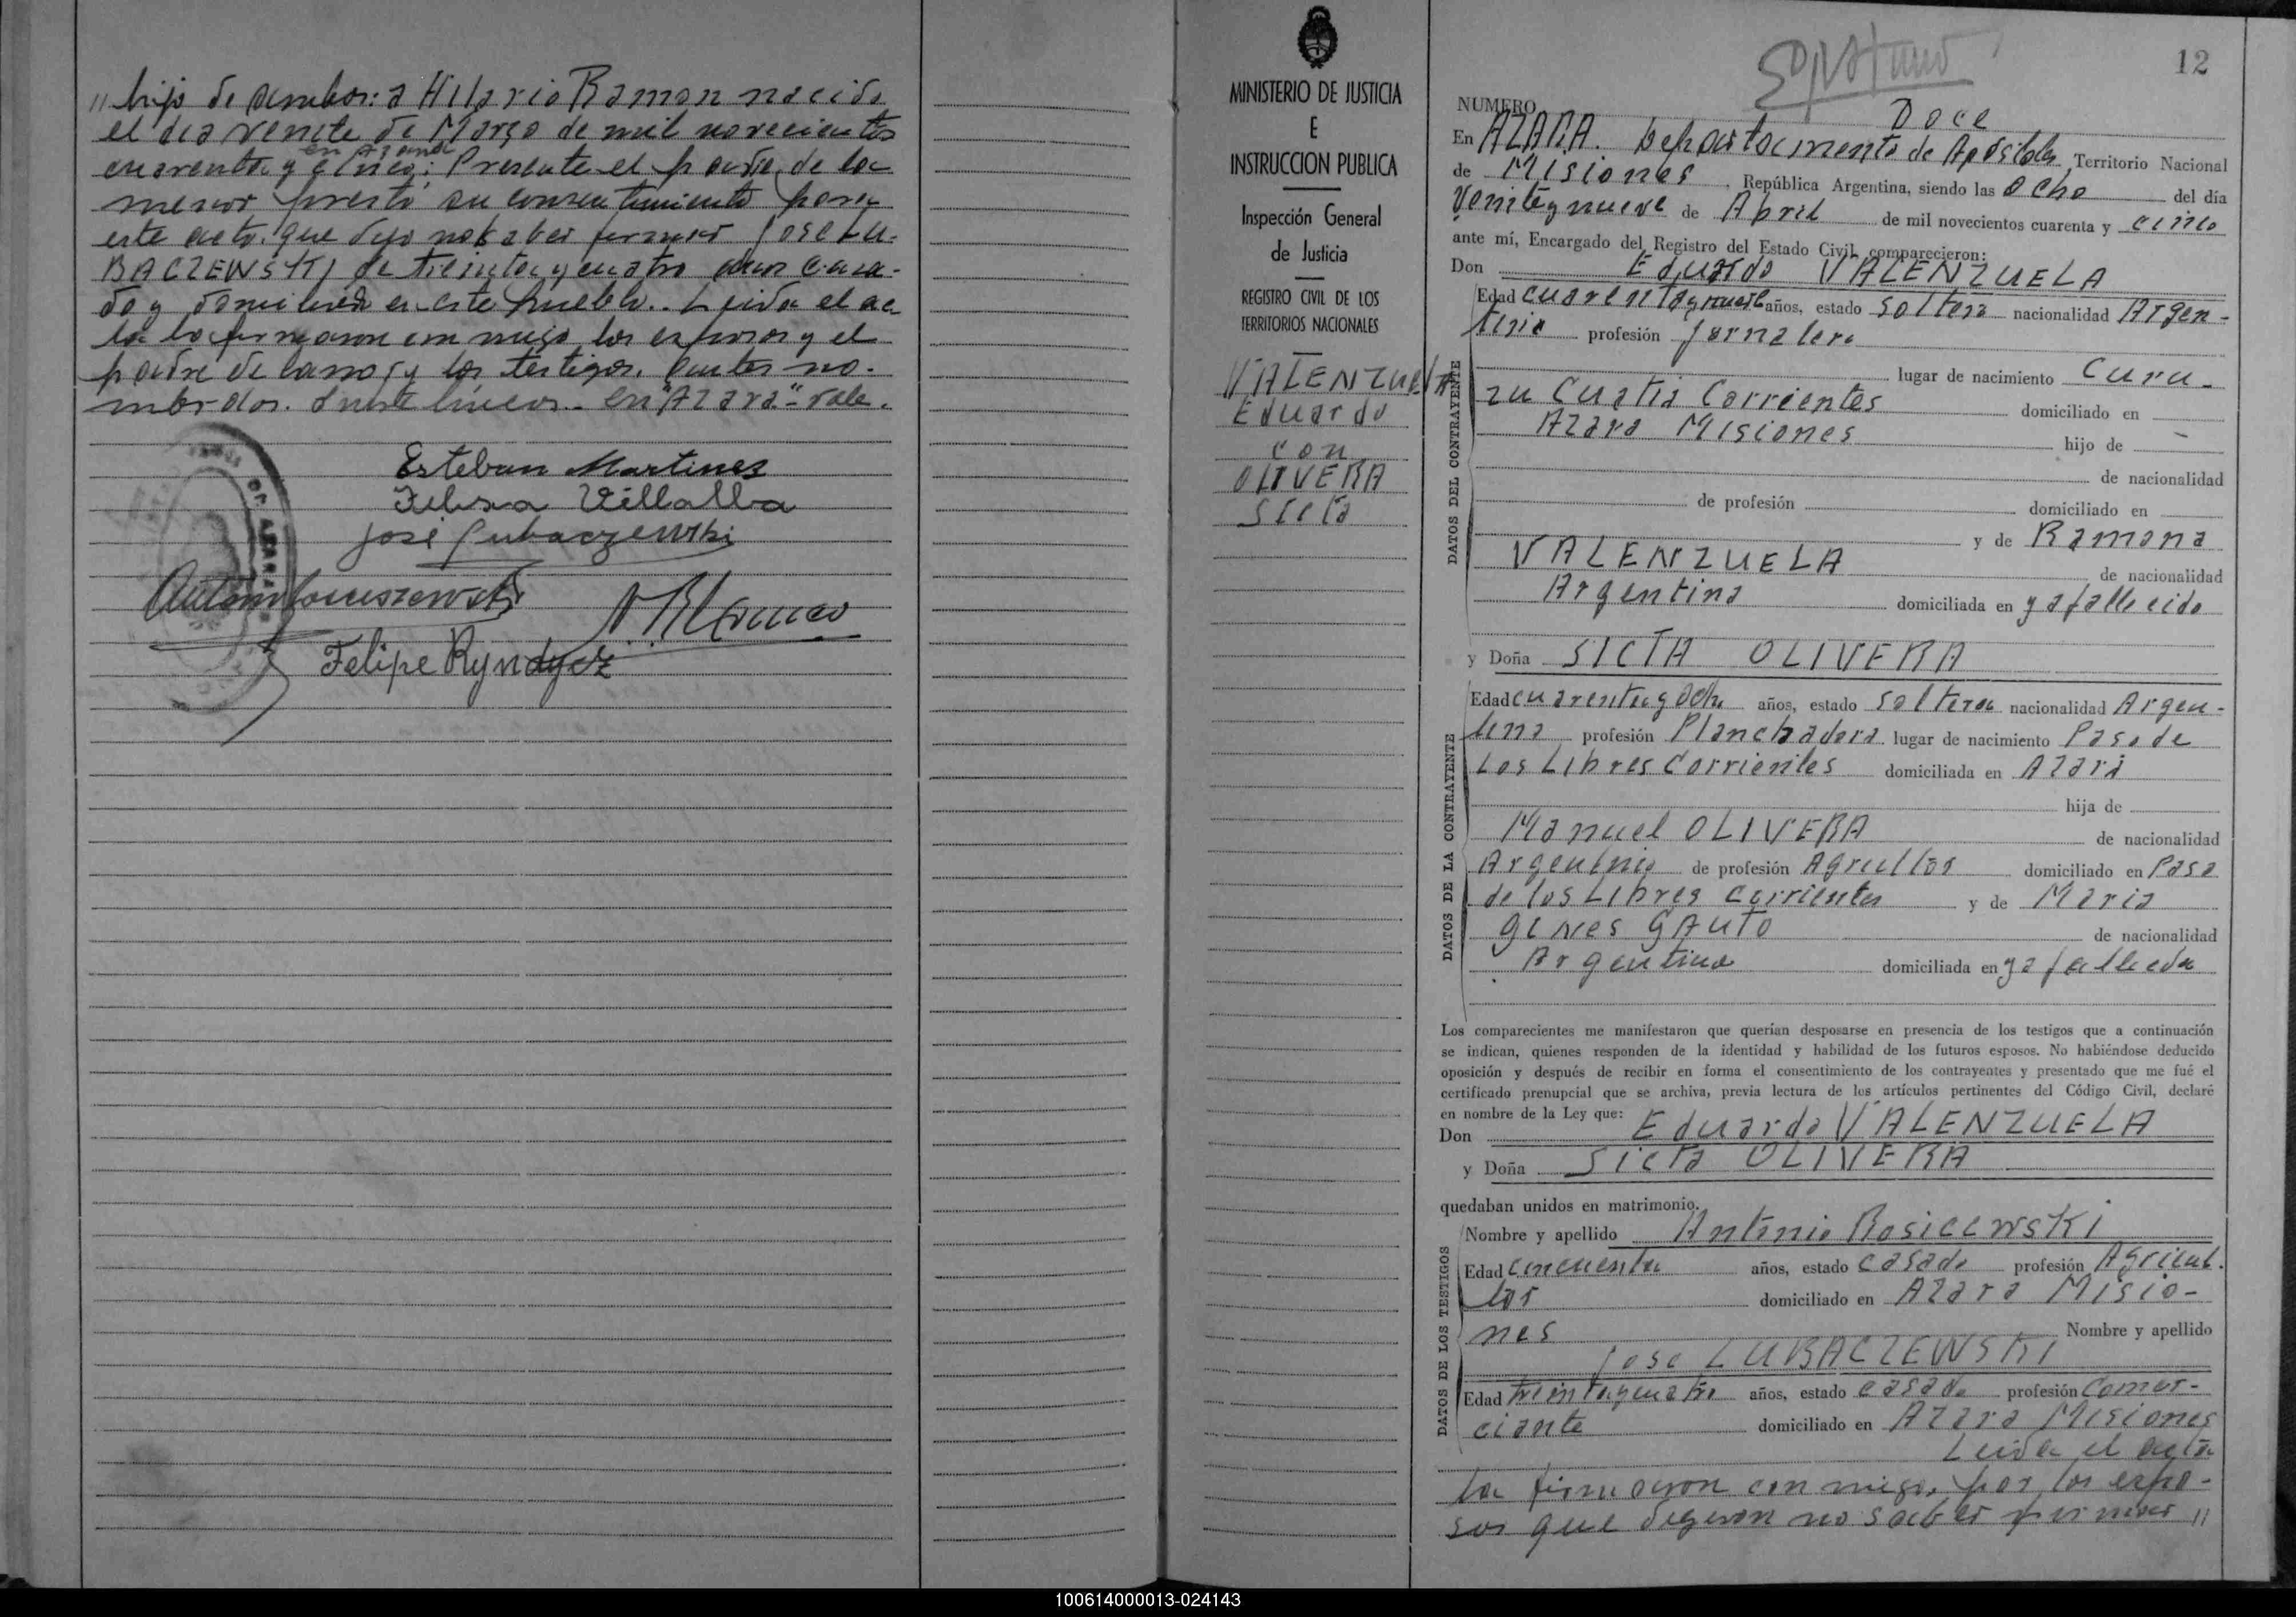 " hijo de ambos: a Hilario Ramon nacido
el dia veinte de Marzo de mil novecientos
en Azara
cuarenta y cinco; Presente el padre de la
menor presto su consentimiento para
este acto, que dijo firmar Jose Lu-
BACZEWSKI de treinta y cuatro años casa-
do y domiciliado en este pueblo.. Leida el ac
ta la firmaron con migo los esposos y el
padre de y los testigos. antes no-
mbrados. entre lineas. en "Azara"- vale.
Esteban Martines
Villalba
José Lubaczewski
Felipe Ryndycz
MINISTERIO DE JUSTICIA
E
INSTRUCCION PUBLICA
Inspección General
de Justicia
REGISTRO CIVIL DE LOS
TERRITORIOS NACIONALES
VALENZUELA
Eduardo
con
OLIVERA
Sicta
12
NUMERO Doce
En AZARA. Departamento de Apóstoles Territorio Nacional
de Misiones, República Argentina, siendo las Ocho del día
Veniteynueve de Abril de mil novecientos cuarenta y cinco
ante mí, Encargado del Registro del Estado Civil, comparecieron:
Don Eduardo VALENZUELA
Edad cuarentaynueve años, estado soltero nacionalidad Argen-
tino profesión Jornalero
lugar de nacimiento Curu-
zu Cuatia Corrientes domiciliado en
Azara Misiones hijo de -
de nacionalidad
de profesión domiciliado en
y de Ramona
VALENZUELA de nacionalidad
Argentina domiciliada en ya fallecida
y Doña SICTA OLIVERA
Edad cuarentayocho años, estado soltera nacionalidad Argen-
tina profesión Planchadora lugar de nacimiento Paso de
Los Libres Corrientes domiciliada en Azara
hija de
Manuel OLIVERA de nacionalidad
Argentino de profesión Agricultor domiciliado en Paso
de los Libres Corrientes y de Maria
gines GAUTO de nacionalidad
Argentina domiciliada en ya fallecida
Los comparecientes me manifestaron que querían desposarse en presencia de los testigos que a continuación
se indican, quienes responden de la identidad y habilidad de los futuros esposos. No habiéndose deducido
oposición y después de recibir en forma el consentimiento de los contrayentes y presentado que me fué el
certificado prenupcial que se archiva, previa lectura de los artículos pertinentes del Código Civil, declaré
en nombre de la Ley que:
Don Eduardo VALENZUELA
y Doña Sicta OLIVERA
quedaban unidos en matrimonio.
Nombre y apellido Antonio Rosicewski
Edad cincuenta años, estado casado profesión Agricul-
tor domiciliado en Azara Misio-
nes Nombre y apellido
Jose LUBACZEWSKI
Edad treintaycuatro años, estado casado profesión Comer-
ciante domiciliado en Azara Misiones
Leida el acta
la firmaron con migo, por los espo-
sos que digeron no saber firmar "
DATOS DEL CONTRAYENTE
DATOS DE LA CONTRAYENTE
DATOS DE LOS TESTIGOS
100614000013-024143